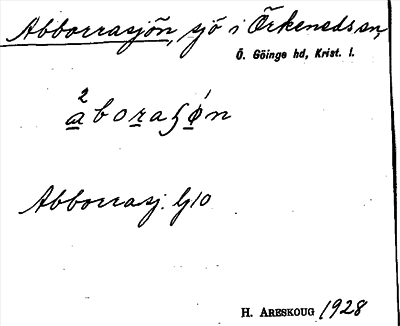 Abborrasjön, sjö i Örkeneds sn,
Ö. Göinge hd, Krist. l.
Abborrasj.
H. ARESKOUG 1928